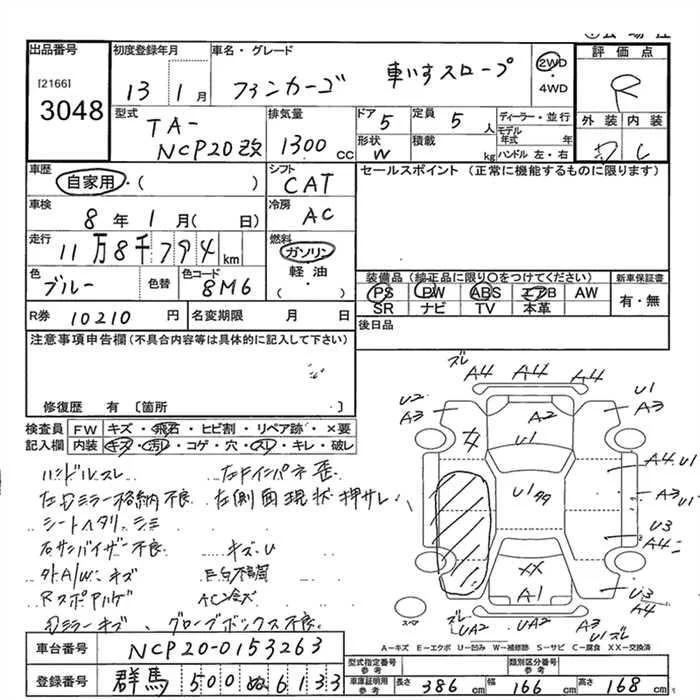 出品番号
[2166]
3048
初度登録年月
13 1月
車名・グレード
ファンカーゴ 車いすスロープ
2WD
・
4WD
評価点
R
外装 内装
型式
TA-
NCP20改
排気量
1300 CC
ドア 5
定員 5 人
形状 W
積載 kg
ディーラー・並行
モデル年式 年
ハンドル 左・右
車歴
自家用・( )
シフト
CAT
セールスポイント (正常に機能するものに限ります)
車検
8年1月( 日)
冷房
AC
走行
11万8千794km
燃料
ガソリン
軽油
・( )
色
ブルー
色替
色コード
8M6
装備品 (純正品に限り○をつけてください)
PS PW ABS エアB AW
SR ナビ TV 本革
新車保証書
有・無
R券 10210 円
名変期限 月 日
後日品
注意事項申告欄(不具合内容等は具体的に記入して下さい)
修復歴 有 〔箇所 〕
検査員 FW キズ・飛石・ヒビ割・リペア跡・×要
記入欄 内装 キズ・汚れ・コゲ・穴・スレ・キレ・破レ
ハンドルスレ 左Fインパネ歪
左Dミラー格納不良 左側面現状押サレ
シートヘタリ、シミ
右サンバイザー不良 キズ、U
外A/W、キズ
Dミラーキズ、グローブボックス不良
ズレ
A4 A4 A4
U2
A3
A2
U1
A3
U1
A4.U1
U1
A3 U1
U3
A4
XX
A1
U3
A4
スペア
ズレ
UA2 UA2 A3
U1ズレ
A=キズ E=エクボ U=凹み W=補修跡 S=サビ C=腐食 XX=交換済
車台番号 NCP20-0153263
登録番号 群馬 500 ぬ 6133
型式指定番号
参考
類別区分番号
参考
車庫証明用
参考
長さ 386 cm 幅 166 cm 高さ 168 cm